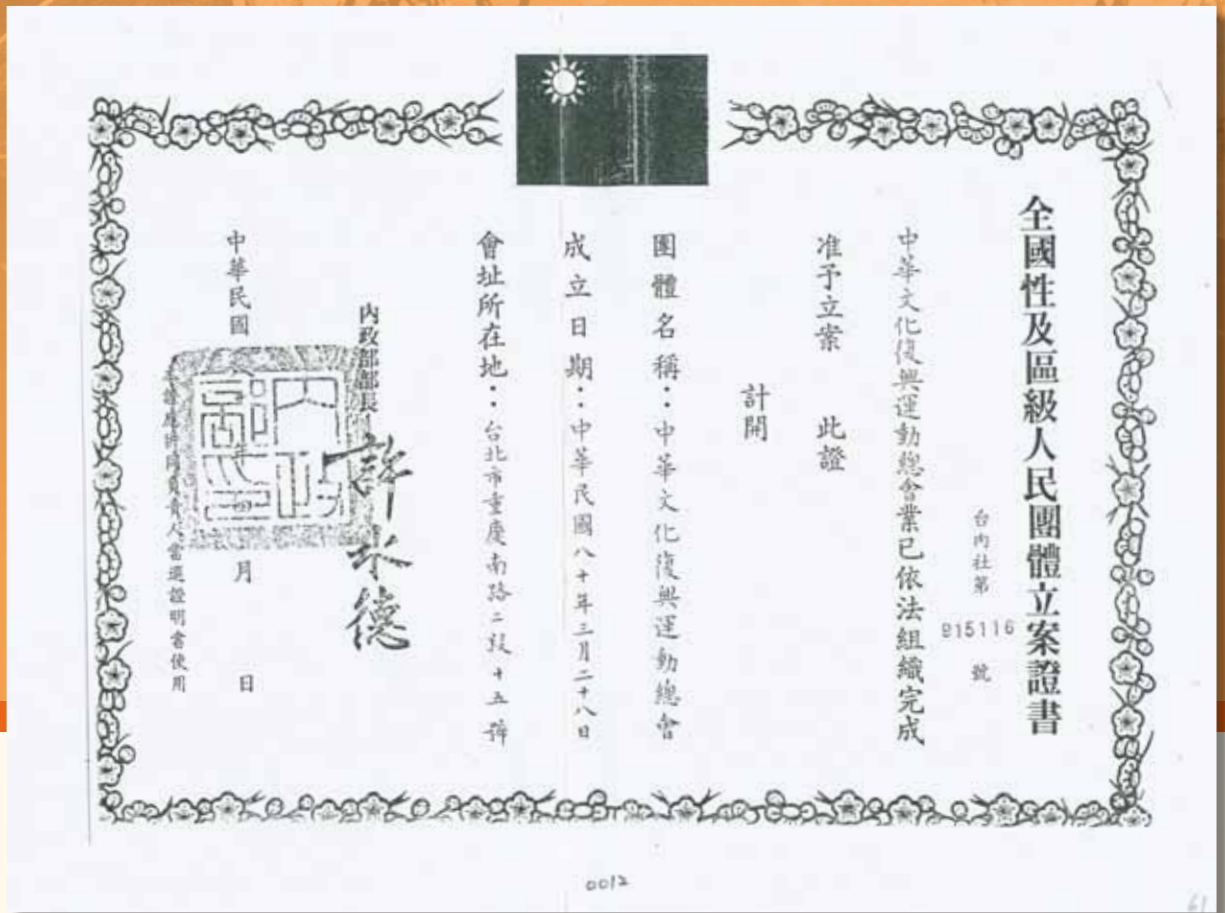 全國性及區級人民團體立案證書
台內社第 915116 號
中華文化復興運動總會業已依法組織完成
准予立案 此證
計開
團體名稱：中華文化復興運動總會
成立日期：中華民國八十年三月二十八日
會址所在地：台北市重慶南路二段十五號
內政部部長 許水德
內政部印
中華民國 年四月 日
人當選證明書使用
0012
61